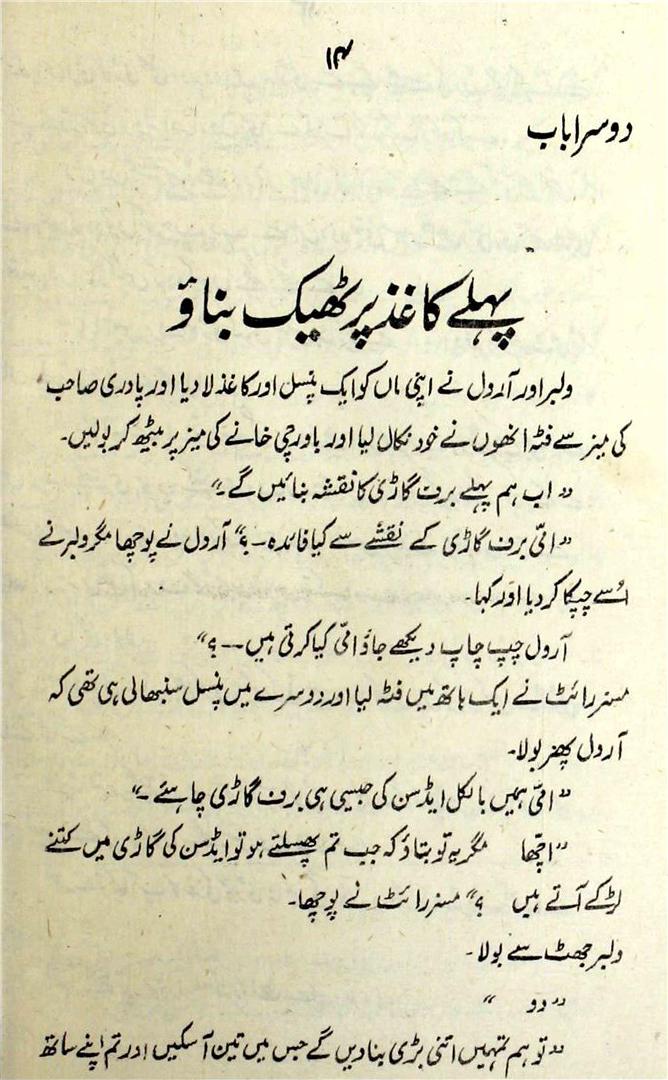 ۱۴
دوسرا باب
پہلے کاغذ پر ٹھیک بناؤ
ولبر اور آرول نے اپنی ماں کو ایک پنسل اور کاغذ لا دیا اور پادری صاحب
کی میز سے فٹہ انھوں نے خود نکال لیا اور باورچی خانے کی میز پر بیٹھ کر بولیں۔
”اب ہم پہلے برف گاڑی کا نقشہ بنائیں گے۔“
”امّی برف گاڑی کے نقشے سے کیا فائدہ۔؟“ آرول نے پوچھا مگر ولبر نے
اُسے چپکا کر دیا اور کہا۔
آرول چپ چاپ دیکھے جاؤ امّی کیا کرتی ہیں۔۔؟“
مسز رائٹ نے ایک ہاتھ میں فٹہ لیا اور دوسرے میں پنسل سنبھالی ہی تھی کہ
آرول پھر بولا۔
”امّی ہمیں بالکل ایڈسن کی جیسی ہی برف گاڑی چاہئے۔“
”اچھا مگر یہ تو بتاؤ کہ جب تم پھسلتے ہو تو ایڈسن کی گاڑی میں کتنے
لڑکے آتے ہیں ؟“ مسز رائٹ نے پوچھا۔
ولبر جھٹ سے بولا۔
”دو “
”تو ہم تمہیں اتنی بڑی بنا دیں گے جس میں تین آ سکیں اور تم اپنے ساتھ